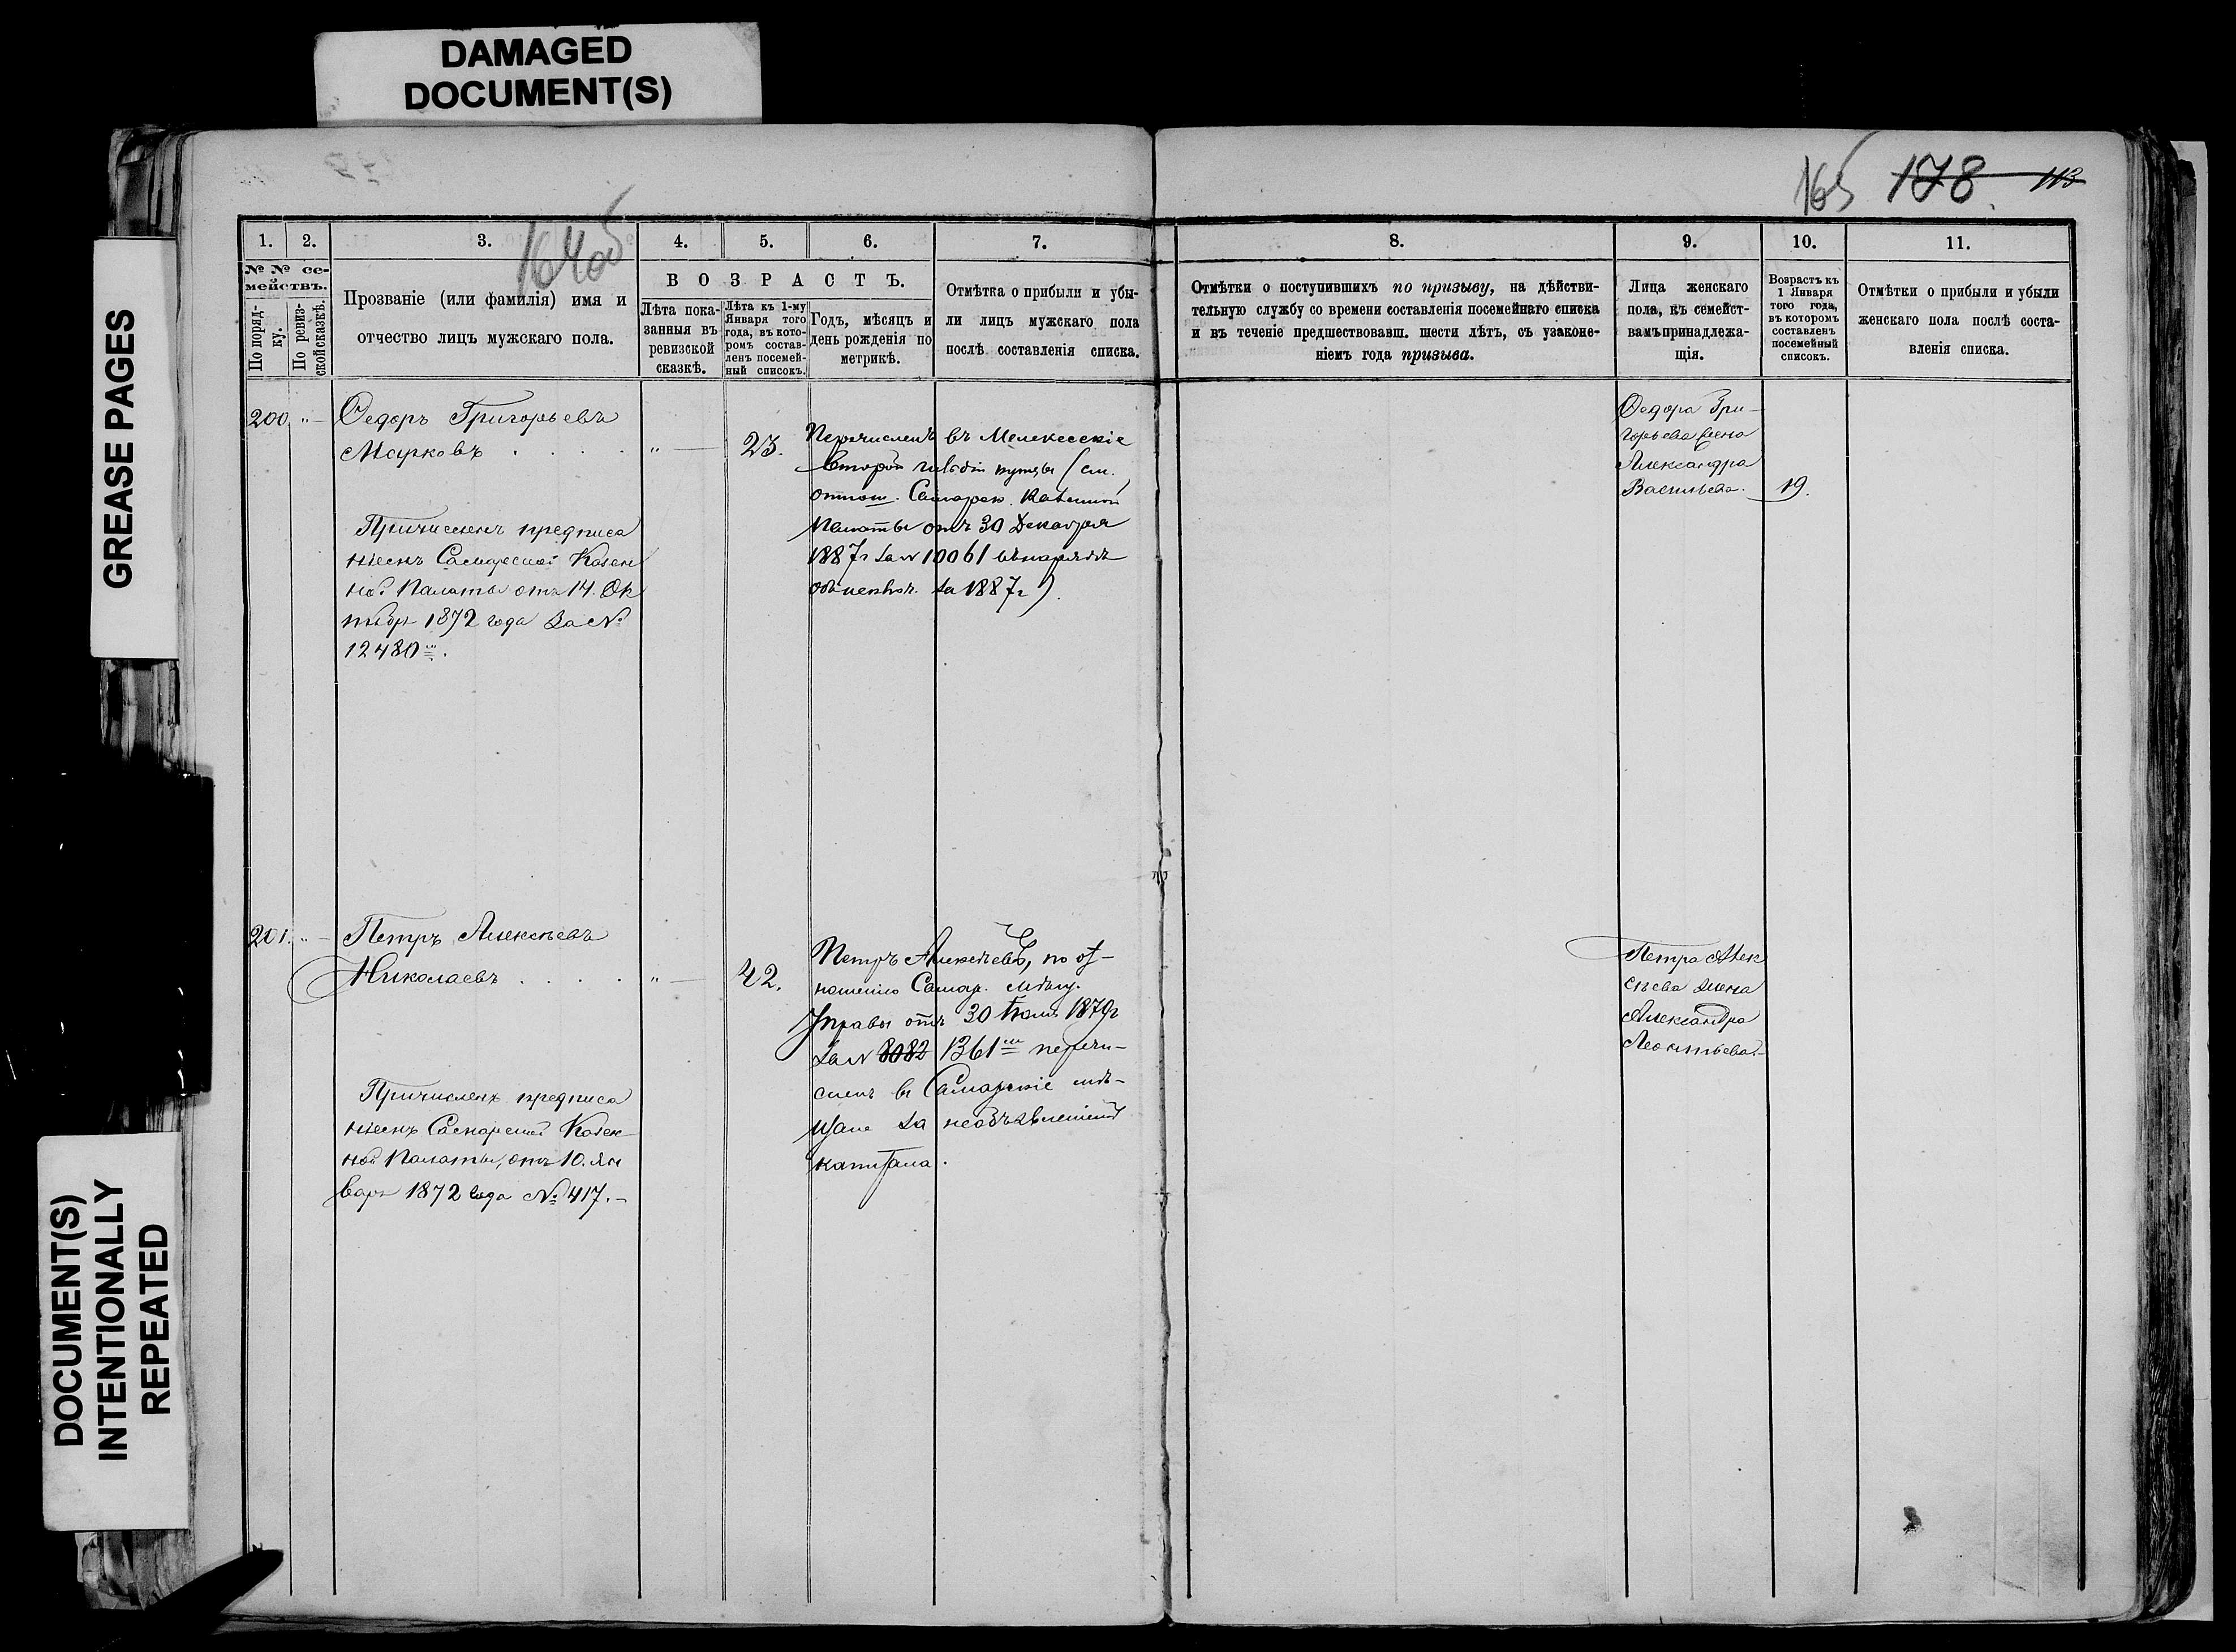 DAMAGED
DOCUMENT(S)
GREASE PAGES
DOCUMENT(S)
INTENTIONALLY
REPEATED
165 178. 113
164об
1.
2.
3.
4.
5.
6.
7.
8.
9.
10.
11.
№№ се-
мействъ.
По поряд-
ку.
По ревиз-
ской сказкѣ.
Прозваніе (или фамилія) имя и
отчество лицъ мужскаго пола.
ВОЗРАСТЪ.
Лѣта пока-
занныя въ
ревизской
сказкѣ.
Лѣта къ 1-му
Января того
года, въ кото-
ромъ состав-
ленъ посемей-
ный списокъ.
Годъ, мѣсяцъ и
день рожденія по
метрикѣ.
Отмѣтка о прибыли и убы-
ли лицъ мужскаго пола
послѣ составленія списка.
Отмѣтки о поступившихъ по призыву, на дѣйстви-
тельную службу со времени составленія посемейнаго списка
и въ теченіе предшествовавш. шести лѣтъ, съ узаконе-
ніемъ года призыва.
Лица женскаго
пола, къ семейст-
вамъ принадлежа-
щія.
Возрастъ къ
1 Января
того года,
въ которомъ
составленъ
посемейный
списокъ.
Отмѣтки о прибыли и убыли
женскаго пола послѣ соста-
вленія списка.
200 „ — Ѳедоръ Григорьевъ
Марковъ . . . . „ — 23.
Причисленъ предписа
ніемъ Самарской Казен
ной Палаты отъ 14. Ок
тября 1872 года За №
12480м.
Перечисленъ въ Мелекесскіе
второй гильдіи купцы (см.
отнош. Самарск. Казенной
Палаты отъ 30 Декабря
1887г за № 10061 въ нарядѣ
за 1887г).
Ѳедора Гри-
горьева жена
Александра
Васильева. 19.
201. „ — Петръ Алексѣевъ
Николаевъ . . . . „ — 42.
Причисленъ предписа
ніемъ Самарской Казен-
ной Палаты, отъ 10. Ян
варя 1872 года № 417. —
Петръ Алексѣевъ, по от-
ношенію Самар. Мѣщ.
Управы отъ 30 1879г
за № 8082 1361м перечи-
сленъ въ Самарскіе мѣ-
щане за необъявленіемъ
капитала.
Петра Алек
сѣева жена
Александра
Леонтьева. —